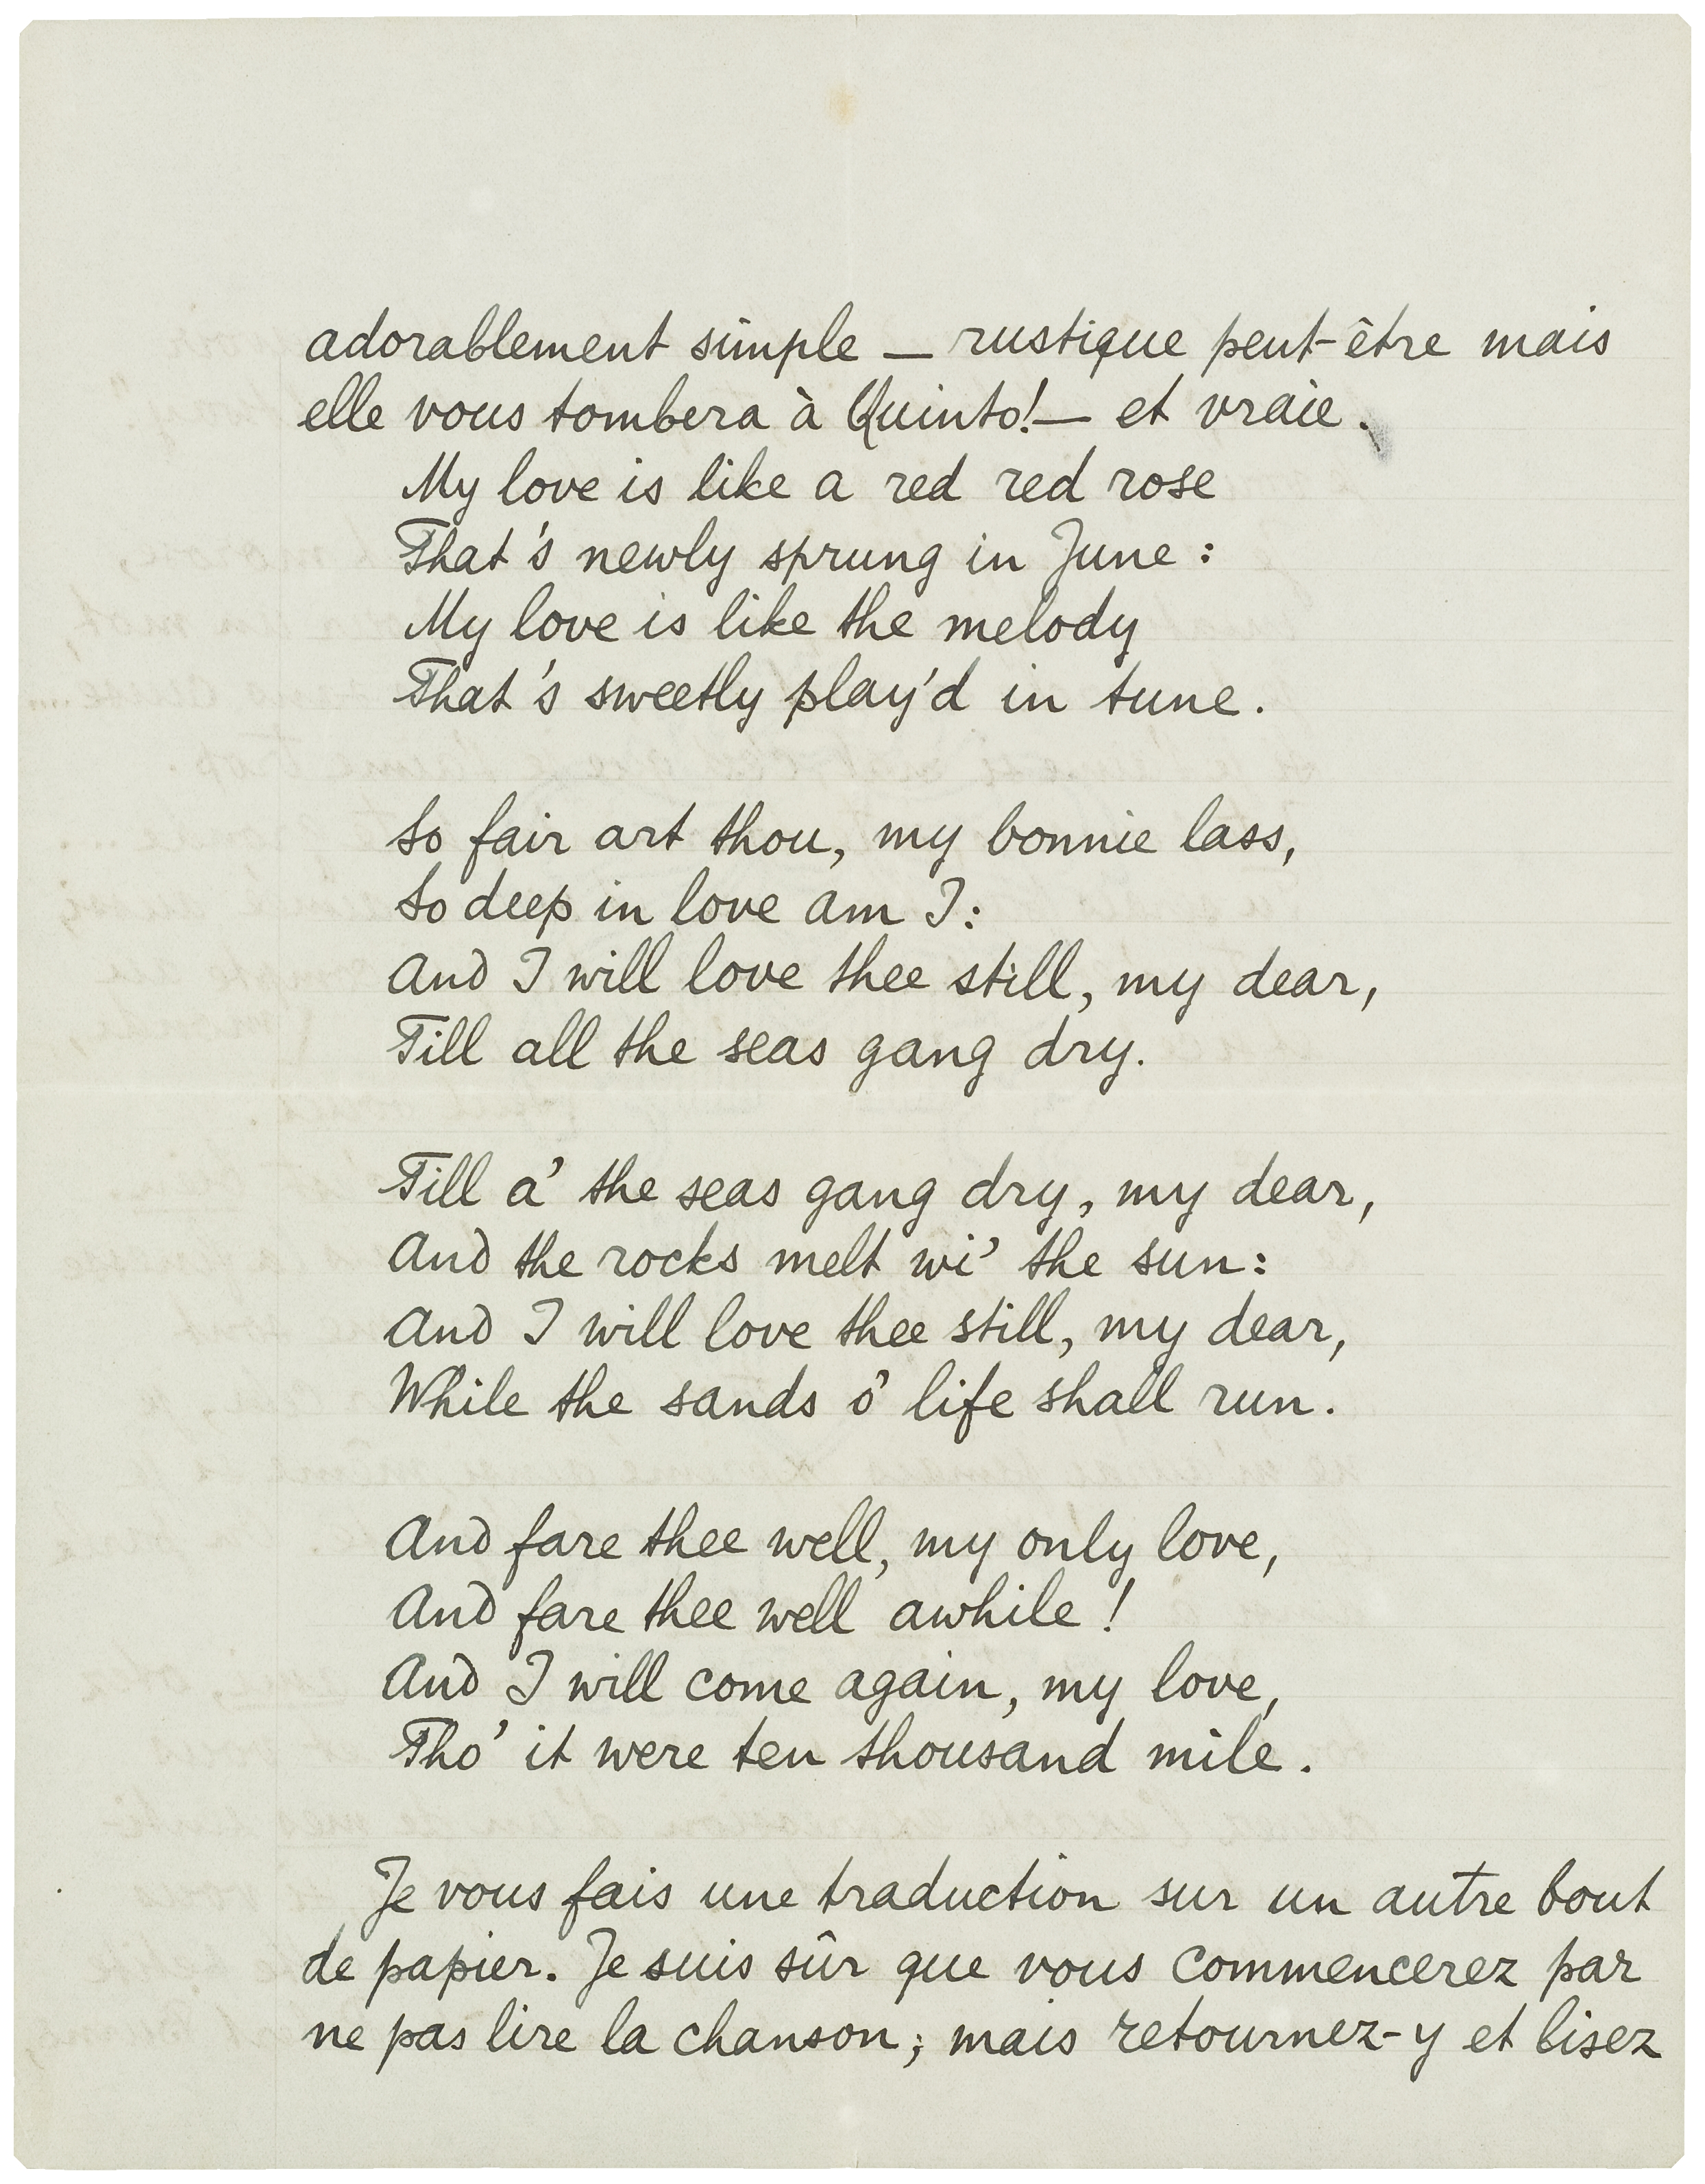 adorablement simple — rustique peut-être mais
elle vous tombera à Quinto! — et vraie.
My love is like a red red rose
That's newly sprung in June:
My love is like the melody
That's sweetly play'd in tune.
So fair art thou, my bonnie lass,
So deep in love am I:
And I will love thee still, my dear,
Till all the seas gang dry.
Till a' the seas gang dry, my dear,
And the rocks melt wi' the sun:
And I will love thee still, my dear,
While the sands o' life shall run.
And fare thee well, my only love,
And fare thee well awhile!
And I will come again, my love,
Tho' it were ten thousand mile.
Je vous fais une traduction sur un autre bout
de papier. Je suis sûr que vous commencerez par
ne pas lire la chanson; mais retournez-y et lisez